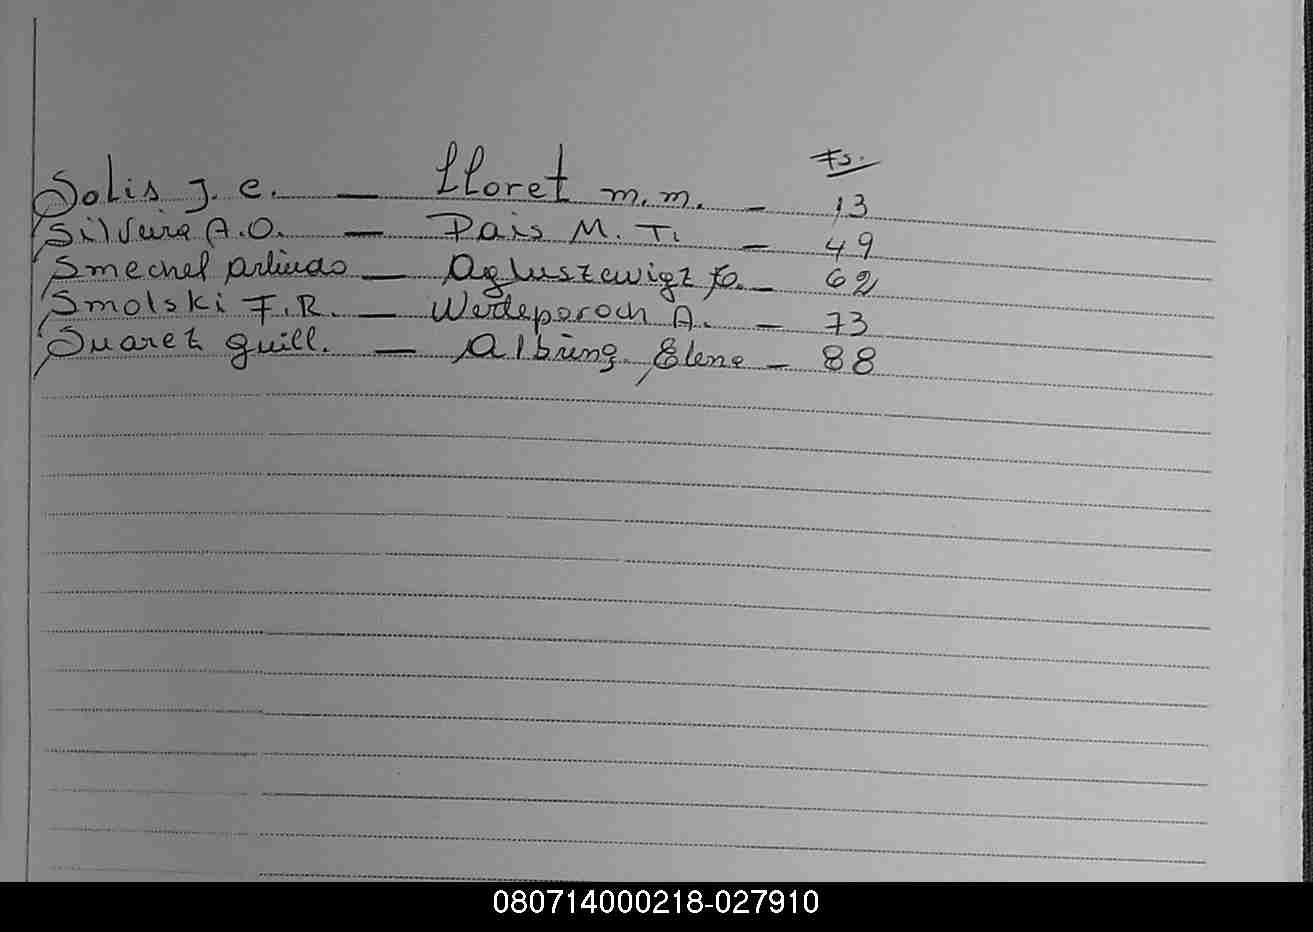 Fs.
Solis J. C. — Lloret M. M. — 13
Silveira A.O. — Pais M. T. — 49
Smechel Arlindo — Agluszewigz — 62
Smolski F. R. — Wedeporoch A. — 73
Suarez Guill. — Albring Elena — 88
080714000218-027910